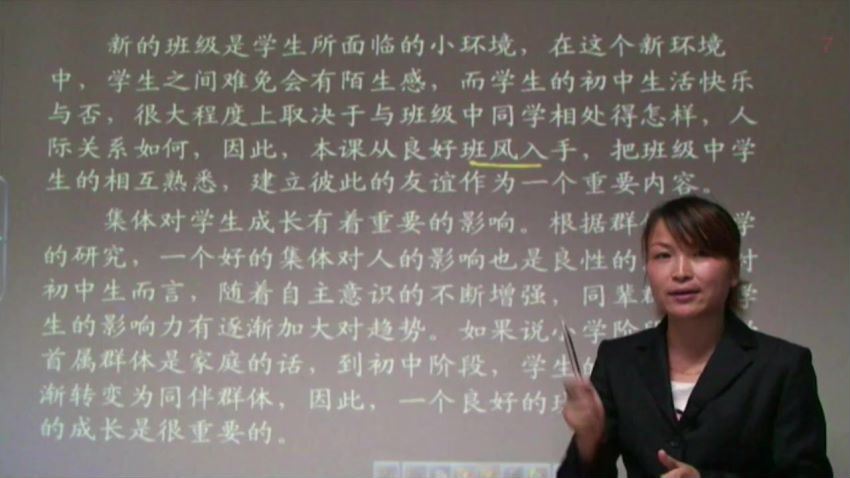 7
新的班级是学生所面临的小环境，在这个新环境
中，学生之间难免会有陌生感，而学生的初中生活快乐
与否，很大程度上取决于与班级中同学相处得怎样，人
际关系如何，因此，本课从良好班风入手，把班级中学
生的相互熟悉，建立彼此的友谊作为一个重要内容。
集体对学生成长有着重要的影响。根据群 学
的研究，一个好的集体对人的影响也是良性的 对
初中生而言，随着自主意识的不断增强，同辈 学
生的影响力有逐渐加大对趋势。如果说小学阶
首属群体是家庭的话，到初中阶段，学生
渐转变为同伴群体，因此，一个良好的班
的成长是很重要的。